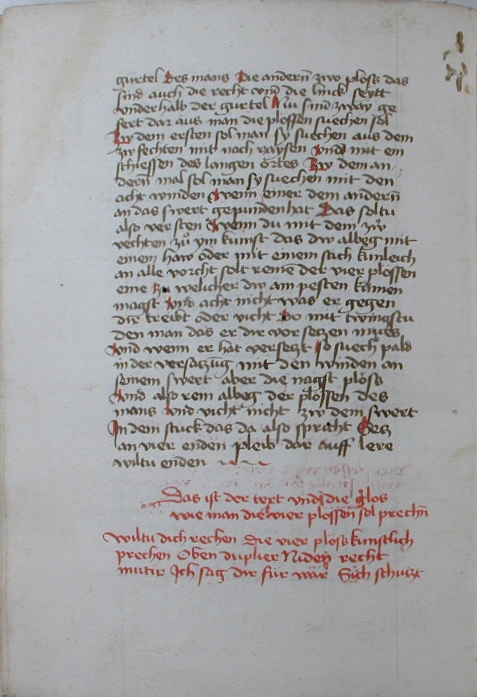 gurtel Des mans Die andern zwo plöss das
sind auch die recht vnd die linck seytt
vnderhalb der gurtel Nu sind zway ge
fert dar aus man die plossen suechen sol
Zw dem ersten sol man sy suechen aus dem
zw fechten mit nach raysen Vnd mit ein
schiessen des langen ortes Zw dem an
dern mal sol man sy suechen mit den
acht winden Wenn einer dem andern
an das swert gepunden hat Das soltu
also versten Wenn du mit dem zw
vechten zu ym kumst das dw albeg mit
einem haw oder mit einem stich künleich
an alle vorcht solt remen der vier plossen
eine Zu welicher dw am pesten komen
magst Vnd acht nicht was er gegen
dir treibt oder vicht Do mit twingstu
den man das er dir vor setzen mues
Vnd wenn er hat versetzt So suech pald
in der versatzüg mit den winden an
seinem swert aber die nagst plöss
Vnd also rem albeg der plossen des
mans Vnd vicht nicht zw dem swert
In dem stuck das da also spricht Setz
an vier enden pleib dar auff lere
wiltu enden
Das ist der text vnd die glos
wie man die vier plossen sol prechn̄
Wiltu dich rechen Die vier plöss künstlich
prechen Oben duplier Niden recht
mutir Ich sag dir für war Sich schutzt